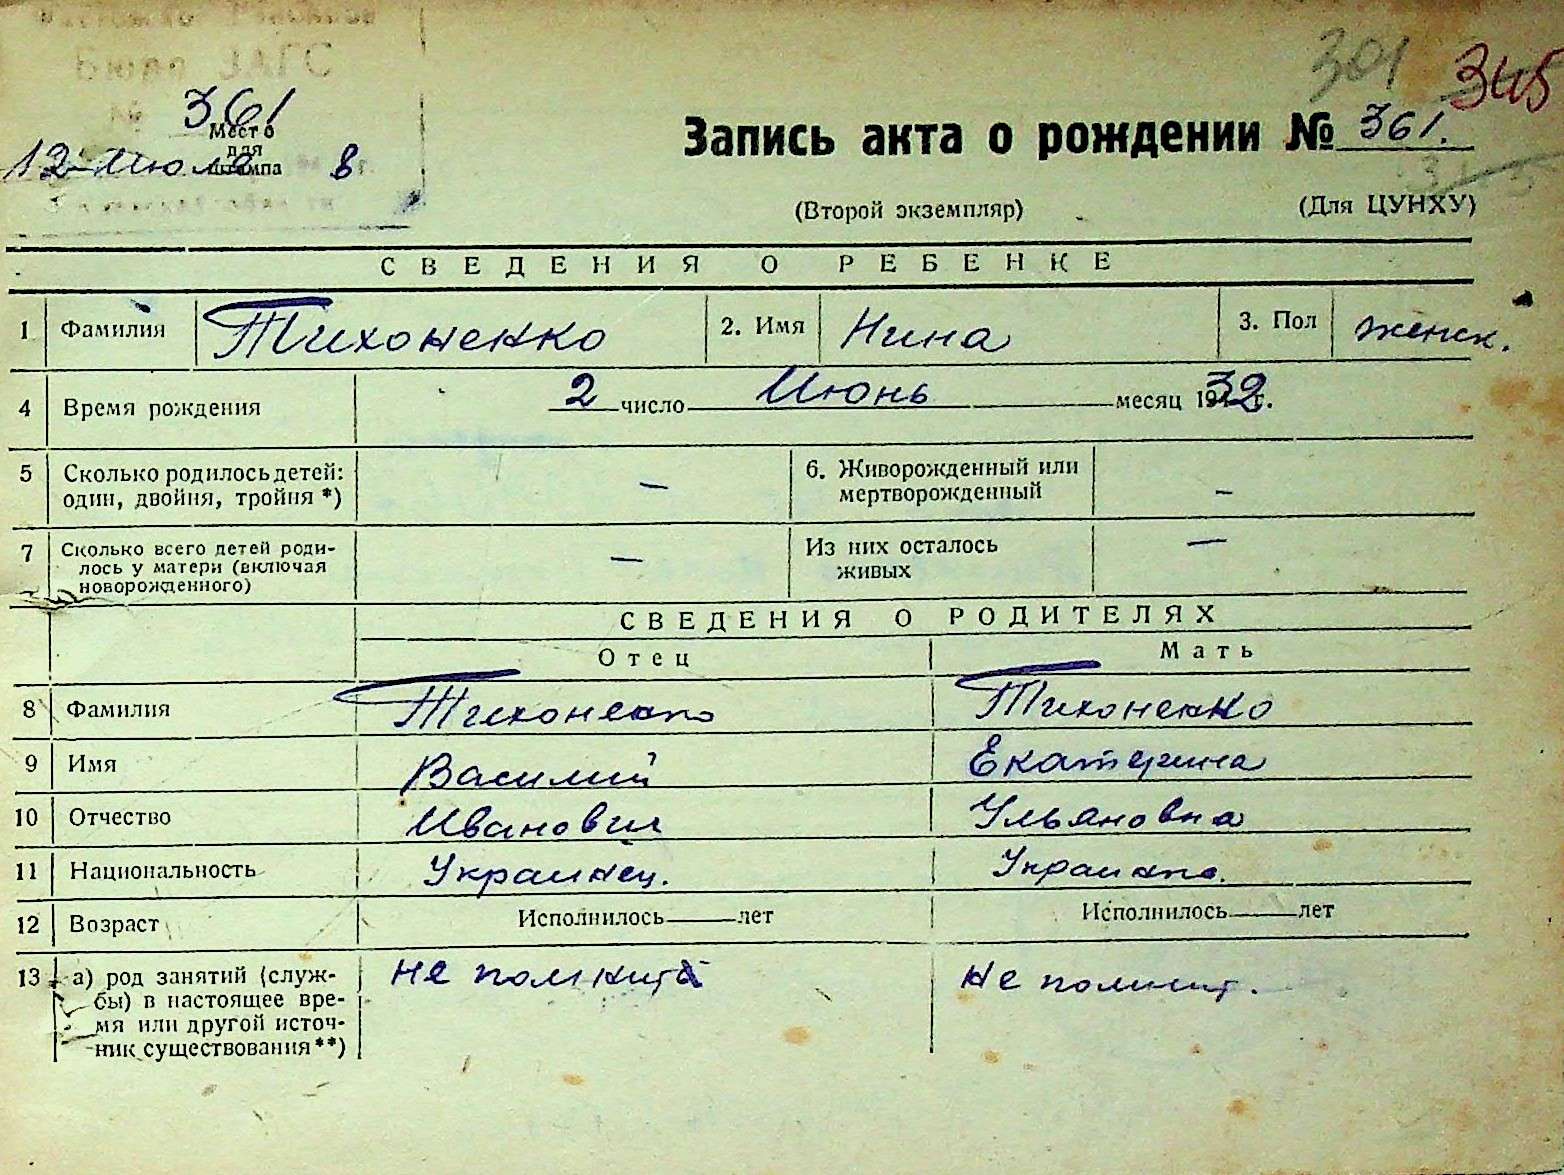 Бюро ЗАГС
301 345
№ 361
Место
для
штампа
12 Июля 8 г.
Запись акта о рождении № 361.
(Второй экземпляр) (Для ЦУНХУ)
СВЕДЕНИЯ О РЕБЕНКЕ
1 Фамилия Тихоненко 2. Имя Нина 3. Пол женск.
4 Время рождения 2 число Июнь месяц 1932 г.
5 Сколько родилось детей: — 6. Живорожденный или —
один, двойня, тройня *) мертворожденный
7 Сколько всего детей роди- — Из них осталось —
лось у матери (включая живых
новорожденного)
СВЕДЕНИЯ О РОДИТЕЛЯХ
Отец Мать
8 Фамилия Тихоненко Тихоненко
9 Имя Василий Екатерина
10 Отчество Иванович Ульяновна
11 Национальность Украинец. Украинка.
12 Возраст Исполнилось лет Исполнилось лет
13 а) род занятий (служ- не помнит не помнит.
бы) в настоящее вре-
мя или другой источ-
ник существования **)